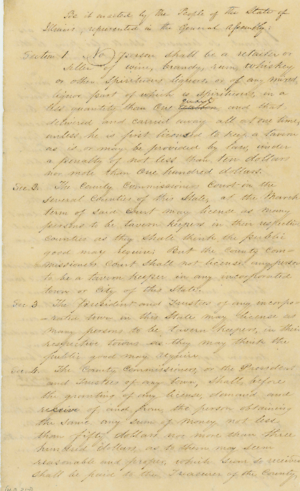 Be it enacted by the People of the State of
Illinois, represented in the General Assembly
Section 1 No person shall be a retailer or
seller of wine, brandy, rum, whiskey
or other Spirituous liquors or of any mixed
liquor part of which is spirituous, in a
less quantity than one quart and that
delivered and carried away all at one time,
unless he is first licensed to keep a tavern
as is or may be provided by law, under
a penalty of not less than ten dollars
nor more than one hundred dollars.
Sec. 2. The County Commissioners Court in the
several Counties of this State, at the March
term of said Court may license as many
persons to be tavern keepers in their respective
counties as they shall think the public
good may require. But the County Com-
missioners Court shall not license any person
to be a tavern keeper in any incorporated
town or City of this State.
Sec. 3. The President and Trustees of any incorpo-
rated town in this State may license as
many persons to be tavern keepers, in their
respective towns as they may think the
public good may require.
Sec. 4. The County Commissioners, or the President
and Trustees of any town, shall, before
the granting of any license, demand and
receive of and from the person obtaining
the same any sum of money not less
than fifty dollars nor more than three
hundred dollars as to them may seem
reasonable and proper, which sum so received
shall be paid to the Treasurer of the County